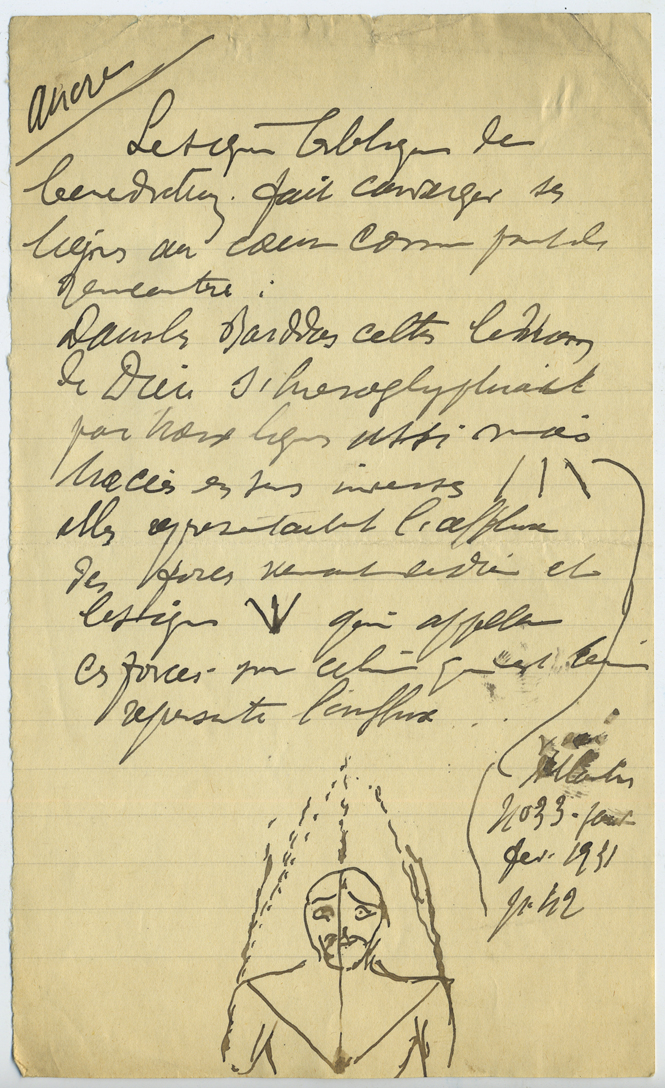 ancre
Le signe biblique de
bénédiction. fait converger ses
lignes au cœur comme point de
rencontre :
Dans les Barddas celtes le nom
de Dieu s'hieroglyphiait
par trois lignes aussi mais
tracées en sens inverse / | \
elles représentaient l'afflux
des forces venant de dieu et
le signe \|/ qui appelle
ces forces - sur celui qui est béni
représente l'influx ...
voir
Atlantis
No 33 - janv
fev. 1931
p. 42